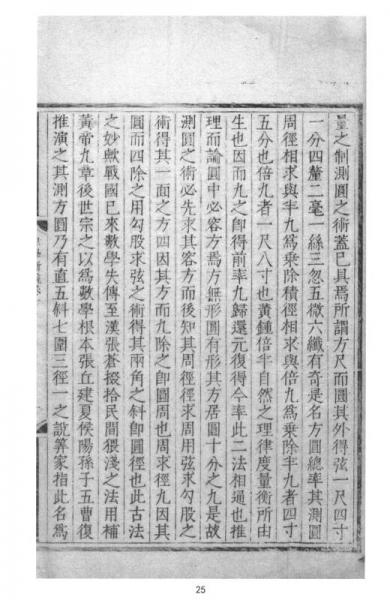 量之制測圓之術蓋已具焉所謂方尺而圓其外得弦一尺四寸
一分四釐二毫一絲三忽五微六纖有奇是名方圓總率其測圓
周徑相求與半九爲乘除積徑相求與倍九爲乘除半九者四寸
五分也倍九者一尺八寸也黃鍾倍半自然之理律度量衡所由
生也因而九之卽得前率九歸還元復得今率此二法相通也推
理而論圓中必容方焉方無形圓有形其方居圓十分之九是故
測圓之術必先求其容方而後知其周徑徑求周用弦求勾股之
術得其一面之方四因其方而九除之卽圓周也周求徑九因其
圓而四除之用勾股求弦之術得其兩角之斜卽圓徑也此古法
之妙歟戰國已來數學失傳至漢張蒼掇拾民間猥淺之法用補
黃帝九章後世宗之以爲數學根本張丘建夏侯陽孫子五曹復
推演之其測方圓乃有直五斜七圍三徑一之說筭家指此名爲
25